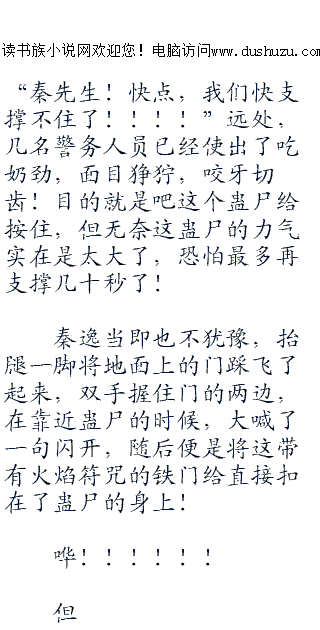 读书族小说网欢迎您！电脑访问www.dushuzu.com
“秦先生！快点，我们快支
撑不住了！！！！”远处，
几名警务人员已经使出了吃
奶劲，面目狰狞，咬牙切
齿！目的就是吧这个蛊尸给
按住，但无奈这蛊尸的力气
实在是太大了，恐怕最多再
支撑几十秒了！
秦逸当即也不犹豫，抬
腿一脚将地面上的门踩飞了
起来，双手握住门的两边，
在靠近蛊尸的时候，大喊了
一句闪开，随后便是将这带
有火焰符咒的铁门给直接扣
在了蛊尸的身上！
哗！！！！！！
但